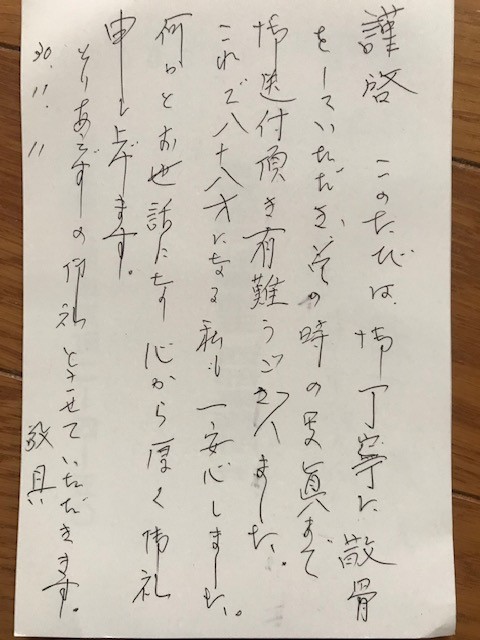 謹啓 このたびは、御丁寧に散骨
をしていただき、その時の写眞まで
御送付頂き有難うございました。
これで八十八才になる私も一安心しました。
何かとお世話になり心から厚く御礼
申し上げます。
とりあえずの御礼とさせていただきます。
敬具
30.11.11